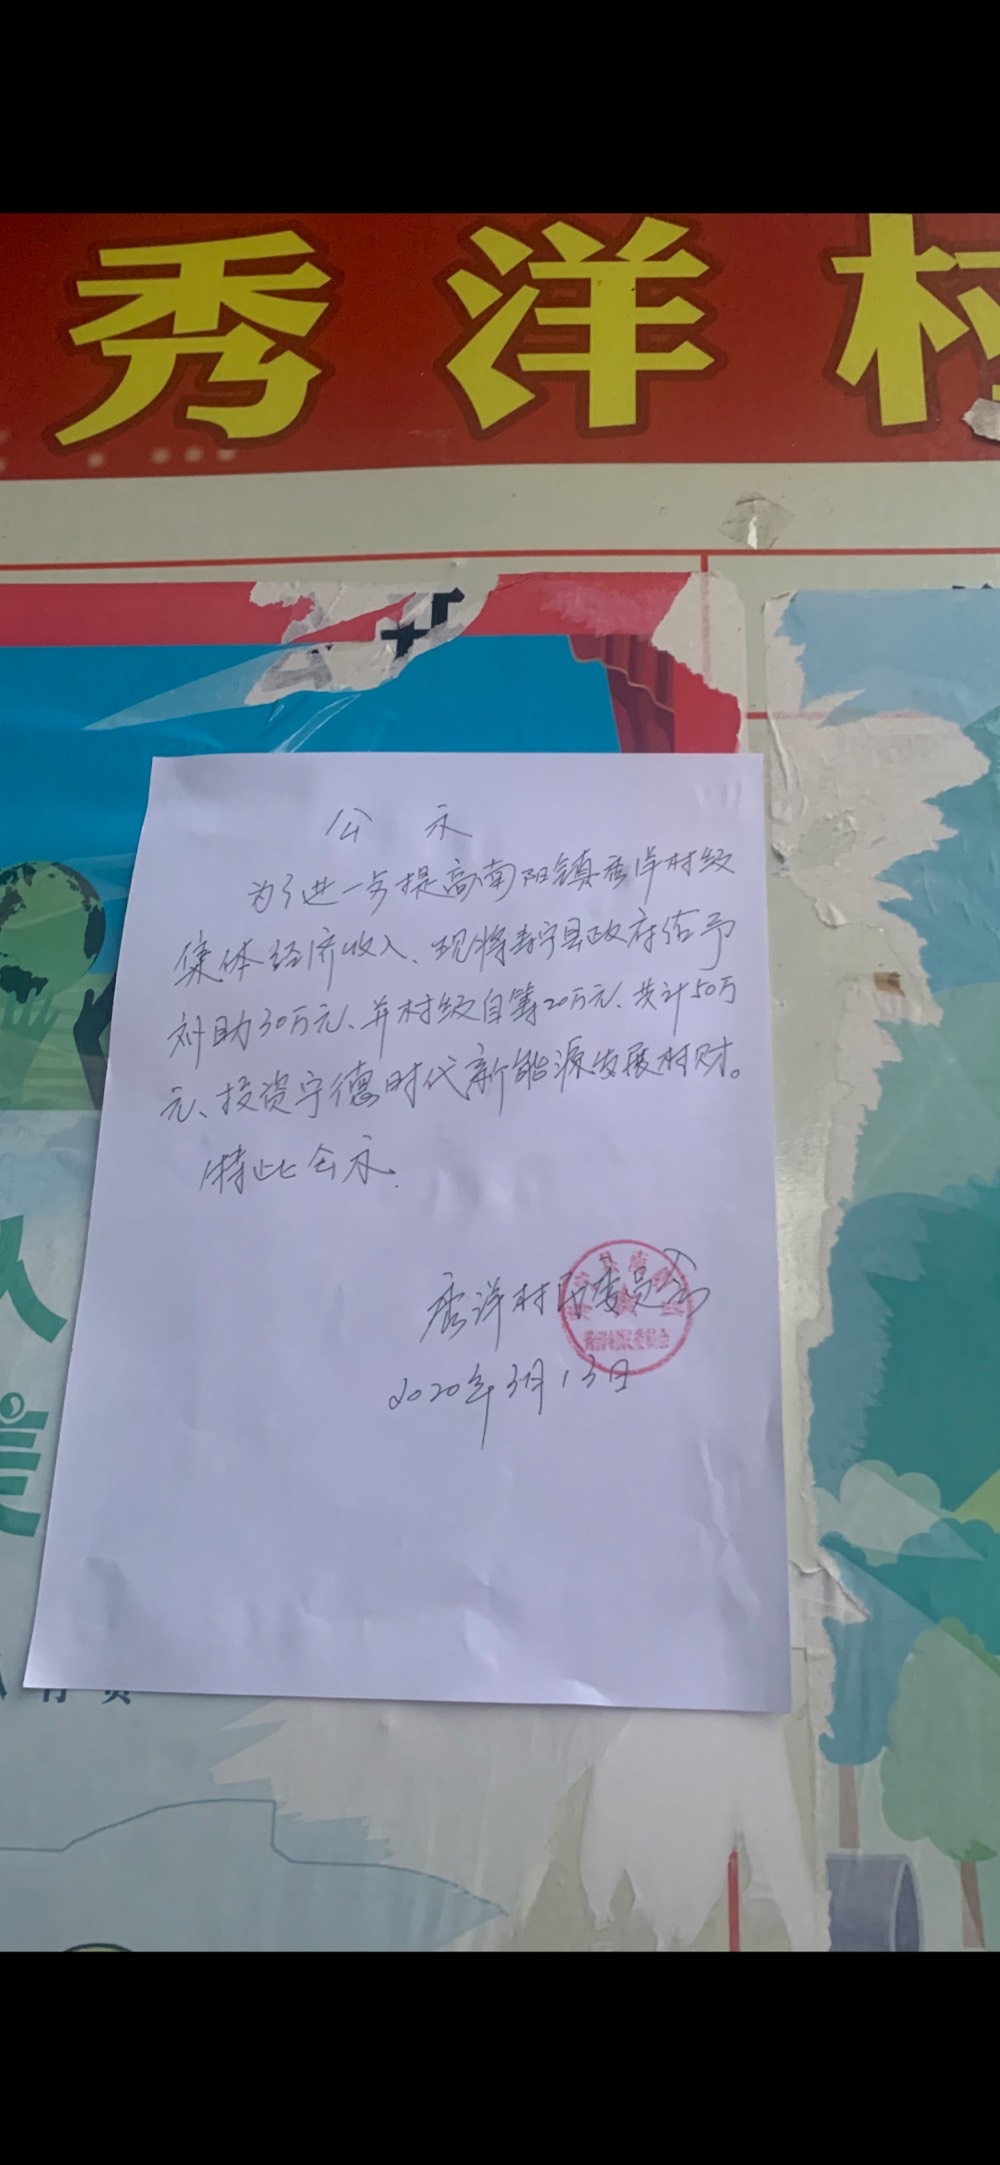 秀洋村
公示
为了进一步提高南阳镇秀洋村级
集体经济收入、现将寿宁县政府给予
补助30万元、并村级自筹20万元、共计50万
元、投资宁德时代新能源发展村财。
特此公示.
秀洋村民委员会
2020年3月13日